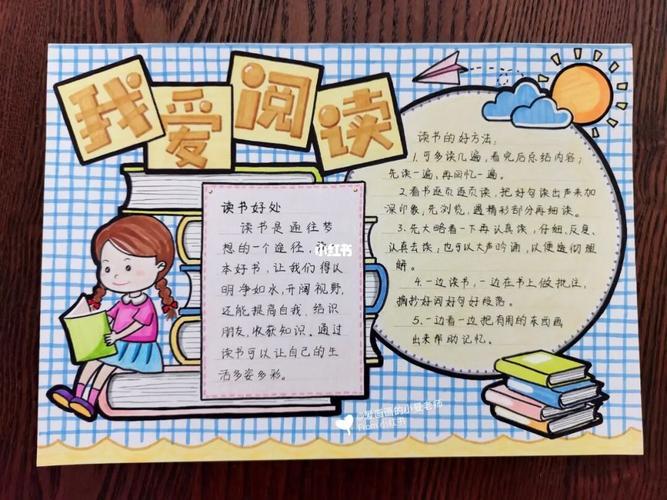 我爱阅读
读书好处
读书是通往梦
想的一个途径,
本好书,让我们得以
明净如水,开阔视野,
还能提高自我,结识
朋友,收获知识。通过
读书可以让自己的生
活多姿多彩。
小红书
读书的好方法:
1.可多读几遍,看完后总结内容;
先读一遍,再回忆一遍。
2.看书逐页逐页读,把好句读出声来加
深印象,先浏览,遇精彩部分再细读。
3.先大略看一下再认真读,仔细、反复、
认真去读;也可以大声吟诵,以便造彻理
解。
4.一边读书,一边在书上做批注,
摘抄好词好句好段落。
5.一边看一边把有用的东西画
出来帮助记忆。
的小夏老师
From 小红书